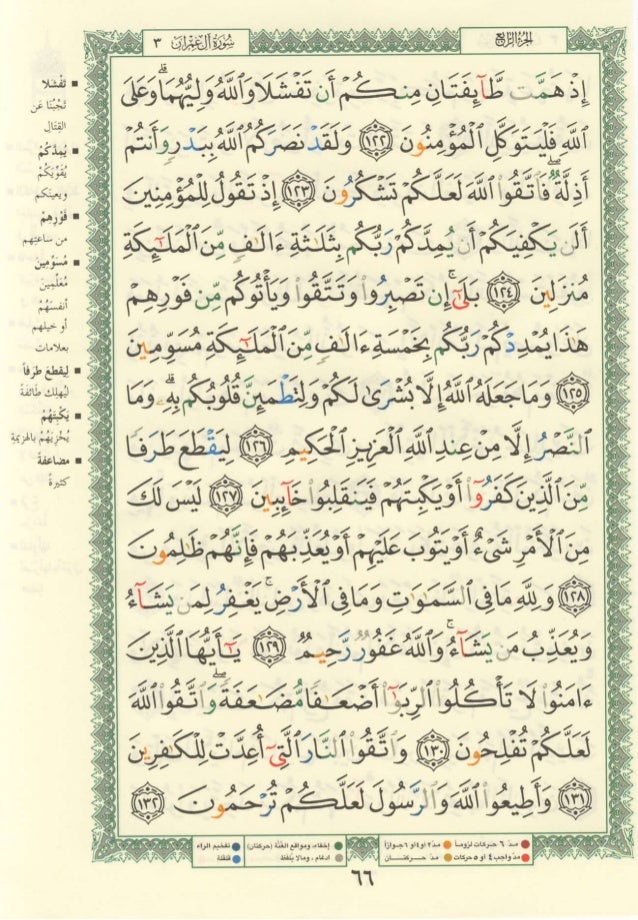 الجزء الرابع
سورة آل عمران ٣
إِذْ هَمَّت طَّآئِفَتَانِ مِنكُمْ أَن تَفْشَلَا وَٱللَّهُ وَلِيُّهُمَا ۗ وَعَلَى
ٱللَّهِ فَلْيَتَوَكَّلِ ٱلْمُؤْمِنُونَ ١٢٢ وَلَقَدْ نَصَرَكُمُ ٱللَّهُ بِبَدْرٍ وَأَنتُمْ
أَذِلَّةٌ ۖ فَٱتَّقُوا۟ ٱللَّهَ لَعَلَّكُمْ تَشْكُرُونَ ١٢٣ إِذْ تَقُولُ لِلْمُؤْمِنِينَ
أَلَن يَكْفِيَكُمْ أَن يُمِدَّكُمْ رَبُّكُم بِثَلَٰثَةِ ءَالَٰفٍ مِّنَ ٱلْمَلَٰٓئِكَةِ
مُنزَلِينَ ١٢٤ بَلَىٰٓ ۚ إِن تَصْبِرُوا۟ وَتَتَّقُوا۟ وَيَأْتُوكُم مِّن فَوْرِهِمْ
هَٰذَا يُمْدِدْكُمْ رَبُّكُم بِخَمْسَةِ ءَالَٰفٍ مِّنَ ٱلْمَلَٰٓئِكَةِ مُسَوِّمِينَ
١٢٥ وَمَا جَعَلَهُ ٱللَّهُ إِلَّا بُشْرَىٰ لَكُمْ وَلِتَطْمَئِنَّ قُلُوبُكُم بِهِۦ ۗ وَمَا
ٱلنَّصْرُ إِلَّا مِنْ عِندِ ٱللَّهِ ٱلْعَزِيزِ ٱلْحَكِيمِ ١٢٦ لِيَقْطَعَ طَرَفًا
مِّنَ ٱلَّذِينَ كَفَرُوٓا۟ أَوْ يَكْبِتَهُمْ فَيَنقَلِبُوا۟ خَآئِبِينَ ١٢٧ لَيْسَ لَكَ
مِنَ ٱلْأَمْرِ شَىْءٌ أَوْ يَتُوبَ عَلَيْهِمْ أَوْ يُعَذِّبَهُمْ فَإِنَّهُمْ ظَٰلِمُونَ
١٢٨ وَلِلَّهِ مَا فِى ٱلسَّمَٰوَٰتِ وَمَا فِى ٱلْأَرْضِ ۚ يَغْفِرُ لِمَن يَشَآءُ
وَيُعَذِّبُ مَن يَشَآءُ ۚ وَٱللَّهُ غَفُورٌ رَّحِيمٌ ١٢٩ يَٰٓأَيُّهَا ٱلَّذِينَ
ءَامَنُوا۟ لَا تَأْكُلُوا۟ ٱلرِّبَوٰٓا۟ أَضْعَٰفًا مُّضَٰعَفَةً ۖ وَٱتَّقُوا۟ ٱللَّهَ
لَعَلَّكُمْ تُفْلِحُونَ ١٣٠ وَٱتَّقُوا۟ ٱلنَّارَ ٱلَّتِىٓ أُعِدَّتْ لِلْكَٰفِرِينَ
١٣١ وَأَطِيعُوا۟ ٱللَّهَ وَٱلرَّسُولَ لَعَلَّكُمْ تُرْحَمُونَ ١٣٢
تَفْشَلا
تَجْبُنَا عَن
القِتَالِ
يُمِدَّكُمْ
يُقَوِّيَكُمْ
ويعينكم
فَوْرِهِمْ
من ساعتِهم
مُسَوِّمِينَ
مُعَلِّمِينَ
أنفسَهُمْ
أو خيلهم
بعلامات
لِيَقْطَعَ طَرَفاً
لِيُهلِكَ طَائفةً
يَكْبِتَهُمْ
يُخْزِيَهُمْ بالهزيمةِ
مضاعفة
كثيرةً
مدّ ٦ حركات لزوماً مدّ ٢ أو ٤ أو ٦ جوازاً
مدّ واجب ٤ أو ٥ حركات مدّ حركتان
إخفاء، ومواقع الغُنَّة (حركتان) تفخيم الراء
ادغام، ومالا يُلفظ قلقلة
٦٦